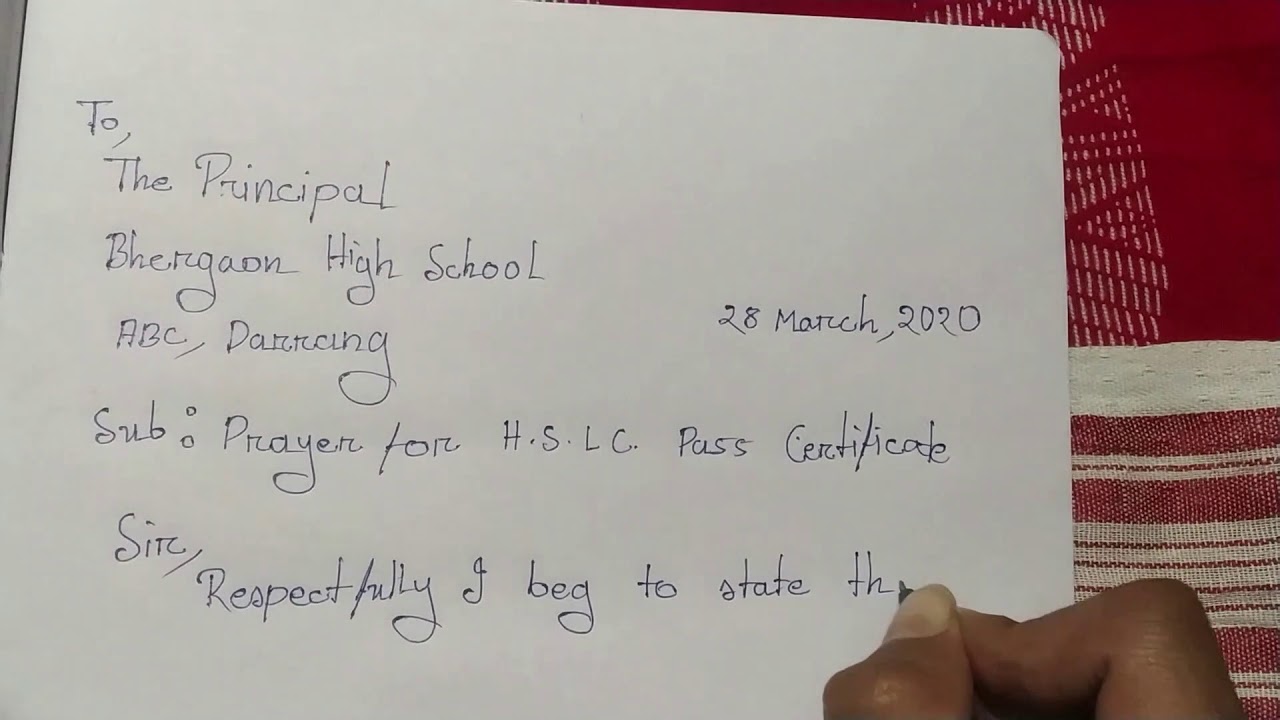 To,
The Principal
Bhergaon High School
28 March, 2020
ABC, Darrang
Sub: Prayer for H.S.L.C. Pass Certificate
Sir,
Respectfully I beg to state th